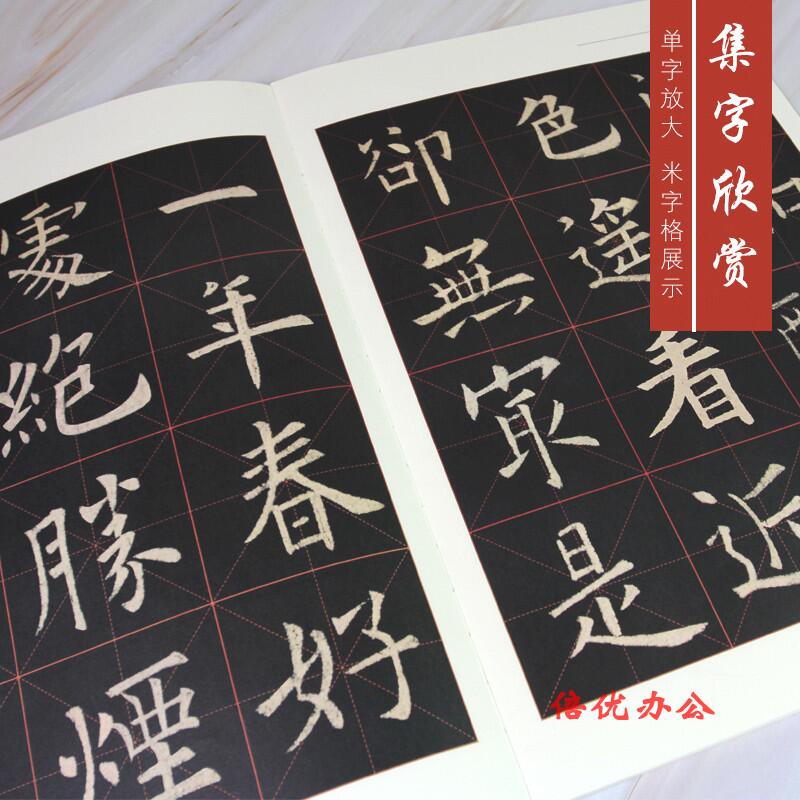 集字欣赏
单字放大 米字格展示
色遙看近
卻無最是
一年春好
處絶勝煙
倍优办公